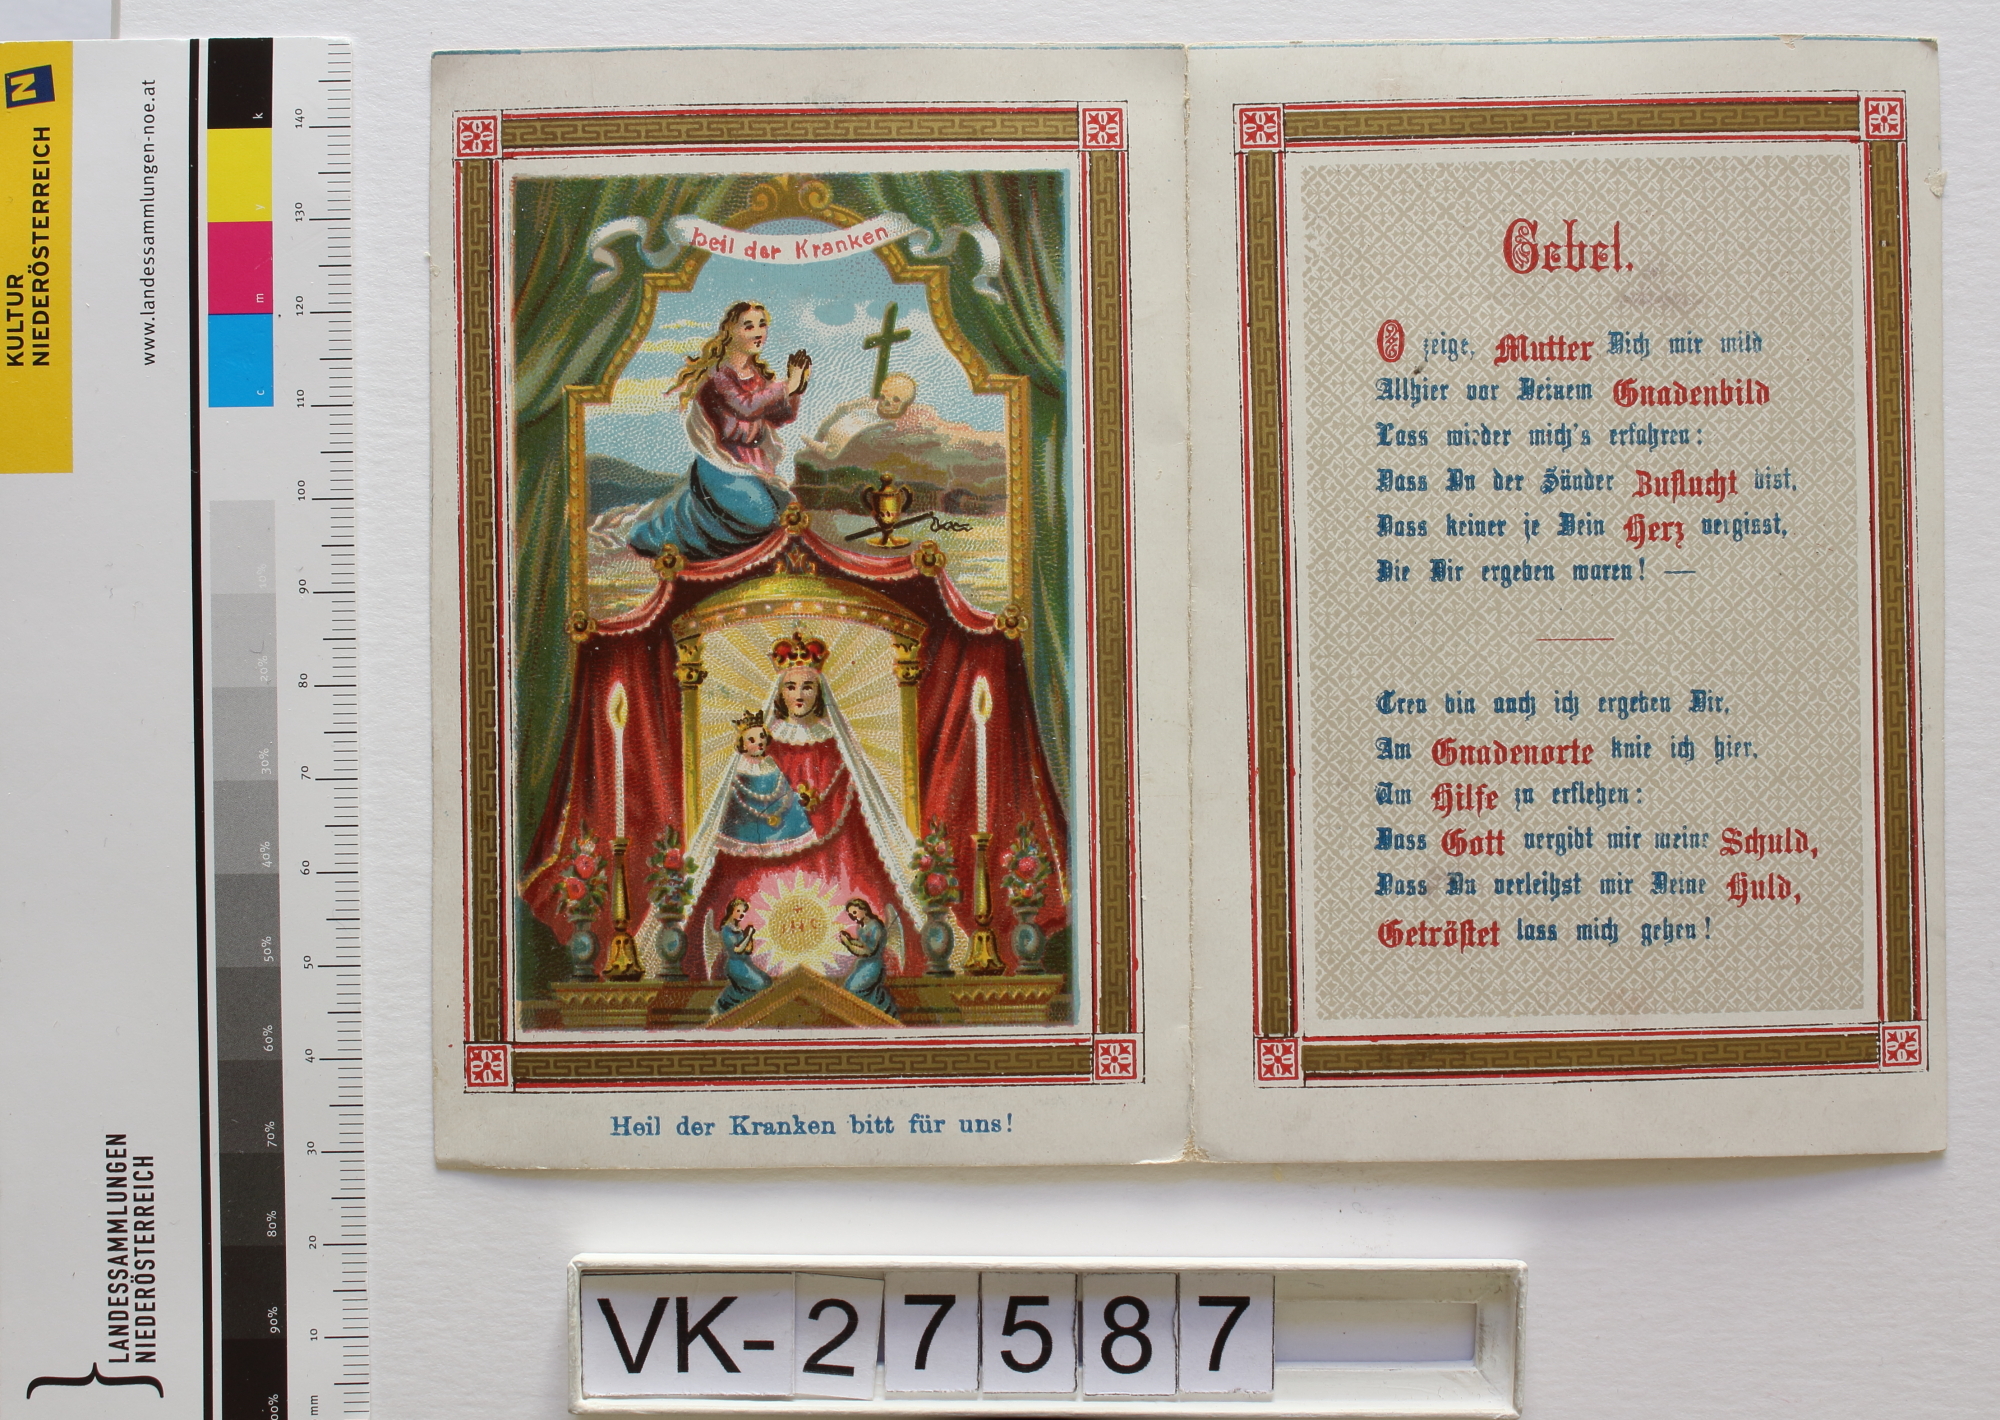 KULTUR
NIEDERÖSTERREICH
N
www.landessammlungen-noe.at
LANDESSAMMLUNGEN
NIEDERÖSTERREICH
k
y
m
c
10%
20%
30%
40%
50%
60%
70%
80%
90%
100%
140
130
120
110
100
90
80
70
60
50
40
30
20
10
mm
Heil der Kranken
IHS
Heil der Kranken bitt für uns!
Gebet.
O zeige, Mutter Dich mir mild
Allhier vor Deinem Gnadenbild
Lass wieder mich's erfahren:
Dass Du der Sünder Zuflucht bist,
Dass keiner je Dein Herz vergisst,
Die Dir ergeben waren! —
Treu bin auch ich ergeben Dir,
Am Gnadenorte knie ich hier,
Um Hilfe zu erflehen:
Dass Gott vergibt mir meine Schuld,
Dass Du verleihst mir Deine Huld,
Getröstet lass mich gehen!
VK-27587